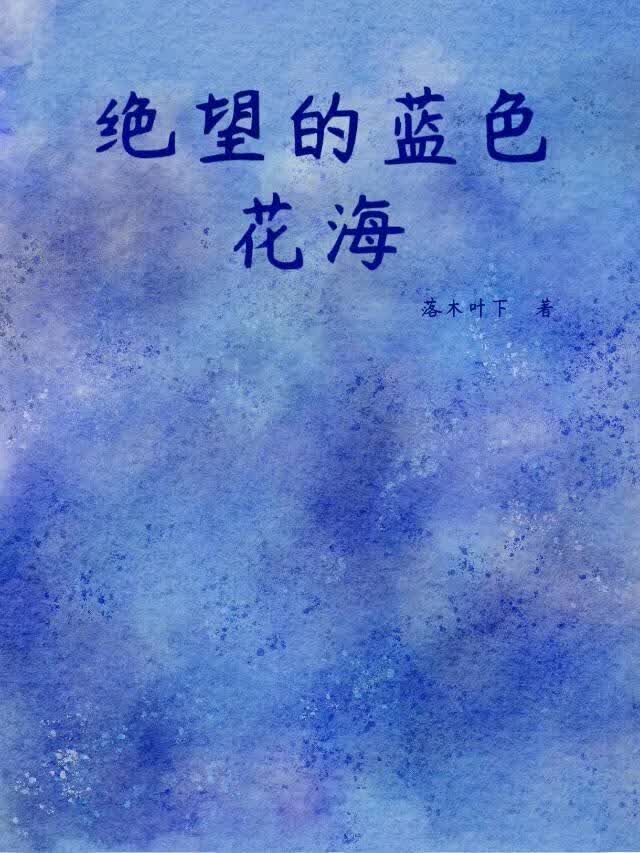 绝望的蓝色
花海
落木叶下 著